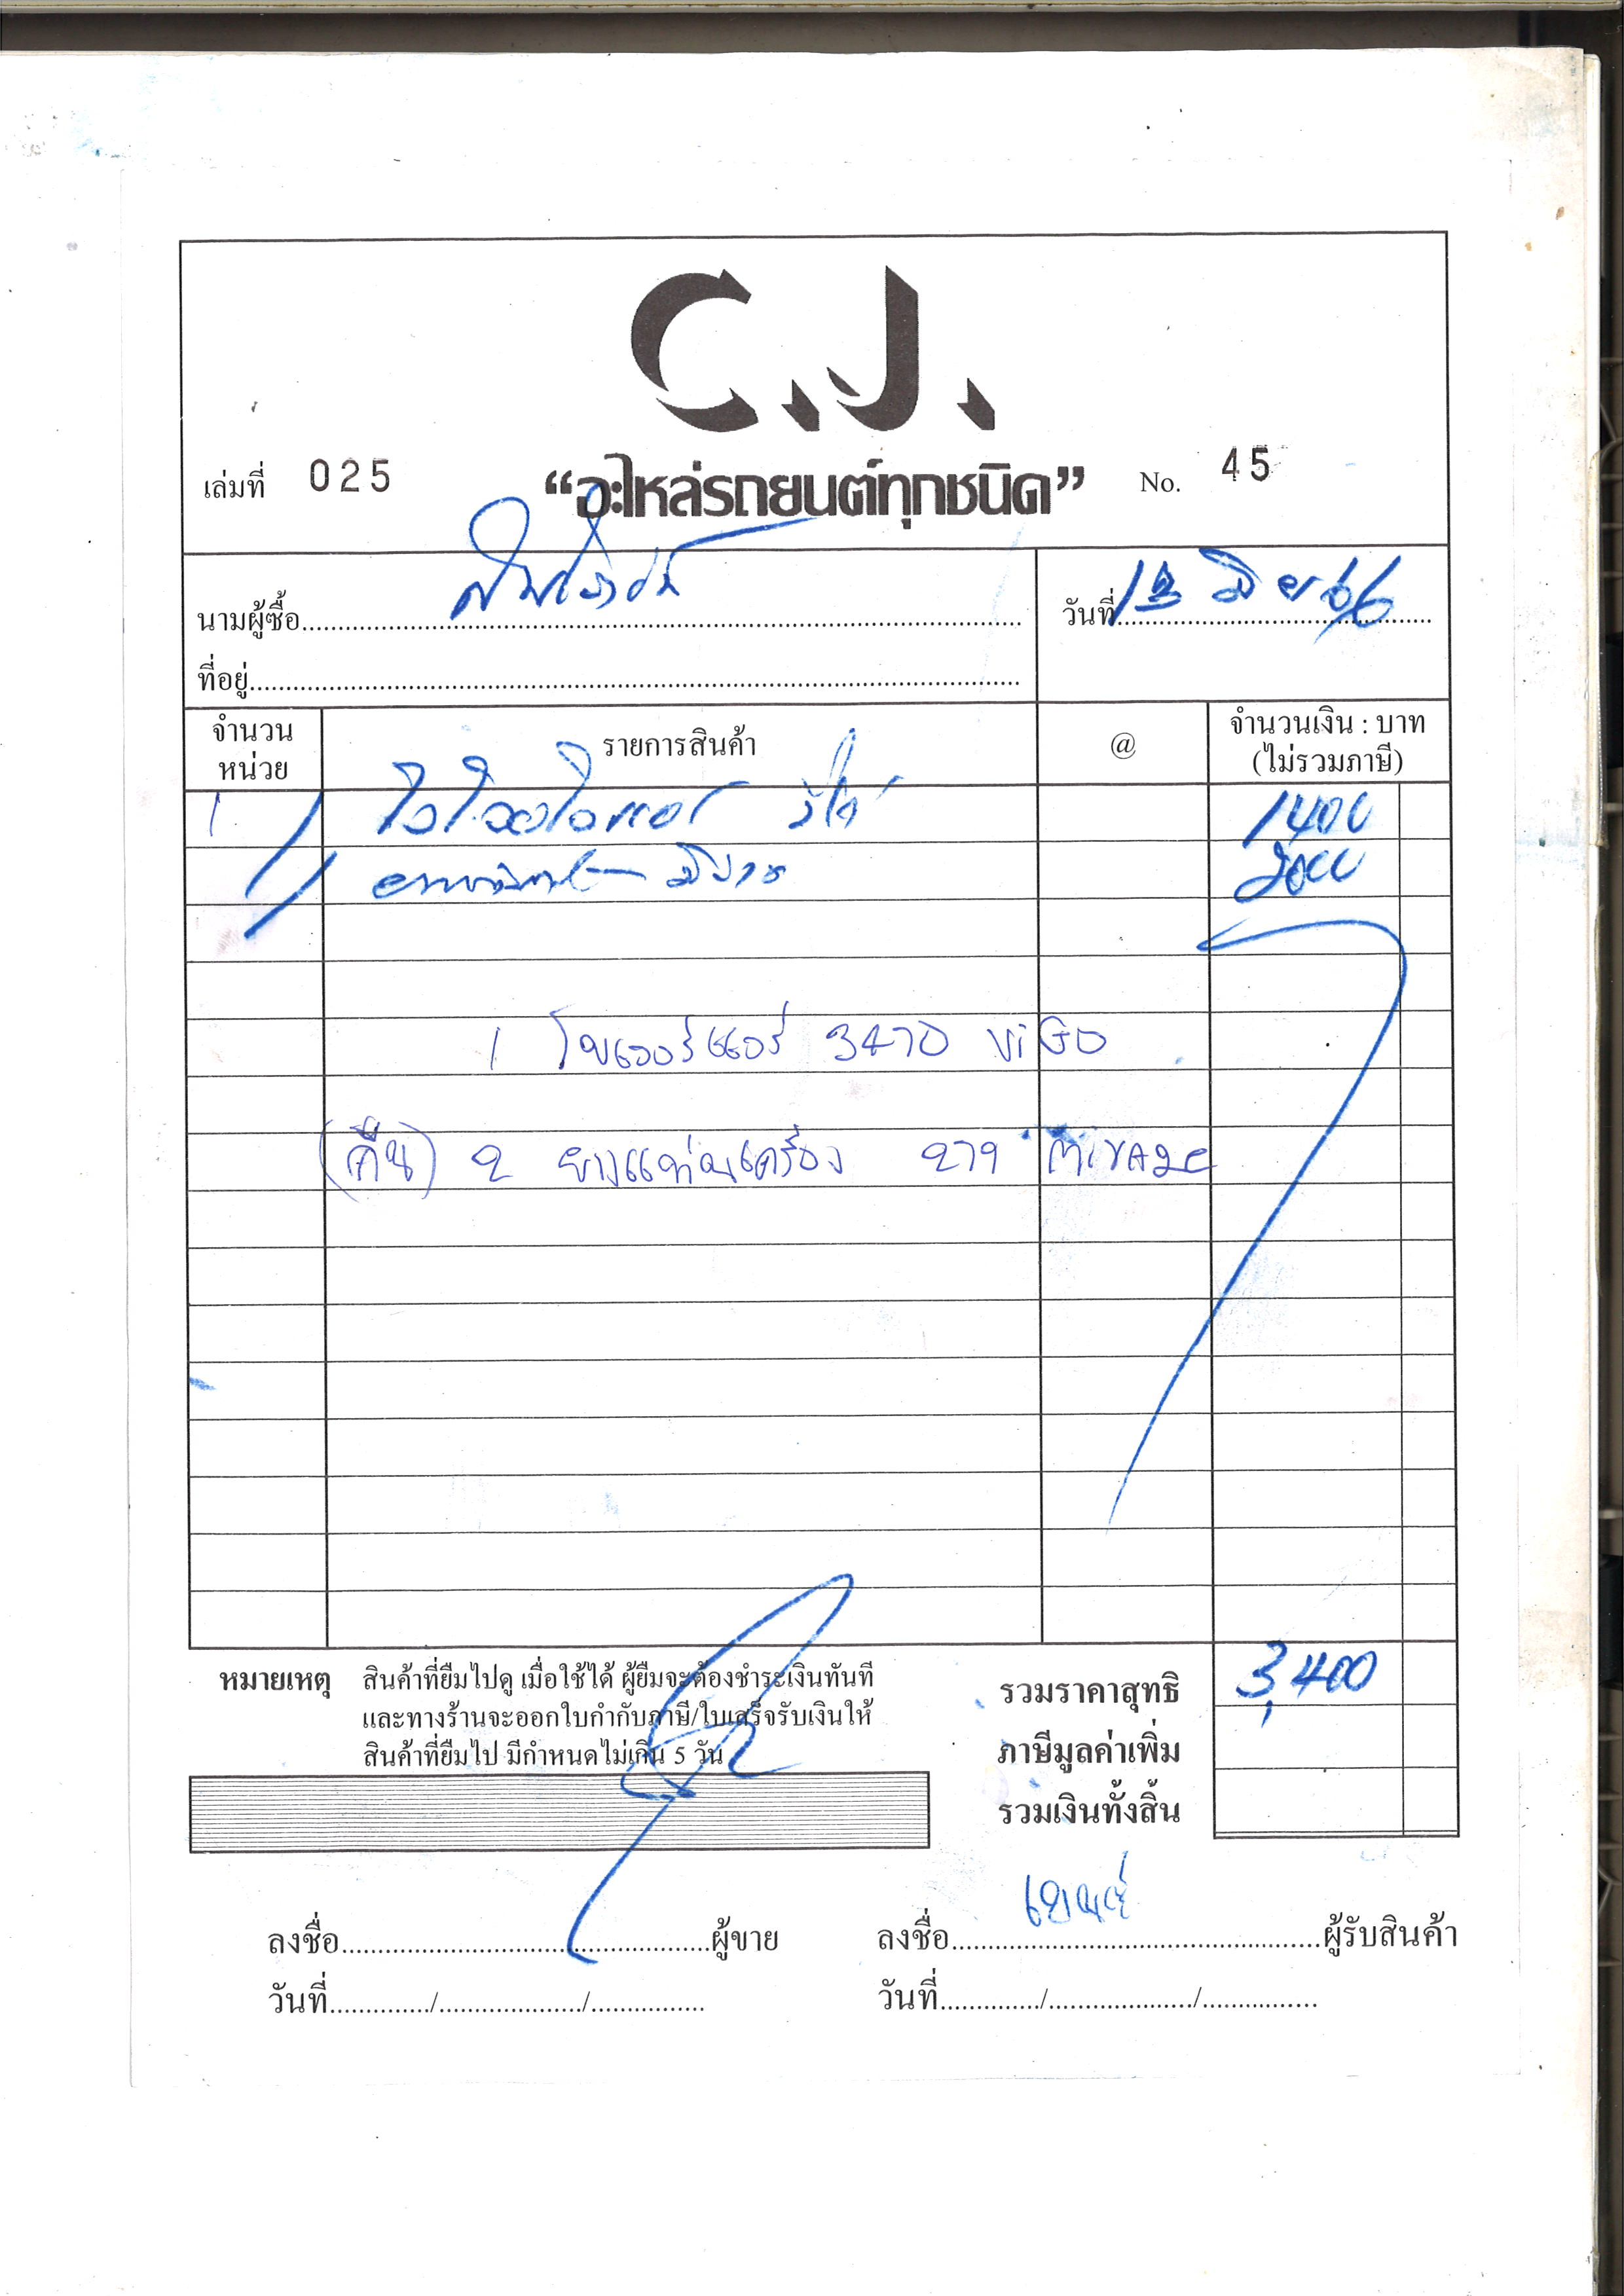 C.J.
เล่มที่ 025 “อะไหล่รถยนต์ทุกชนิด” No. 45
นามผู้ซื้อ วันที่ 12 มิย 66
ที่อยู่
จำนวน หน่วย รายการสินค้า @ จำนวนเงิน : บาท (ไม่รวมภาษี)
1 วีโก้ 1400
มิราจ 2000
1 โบเวอร์แอร์ 3470 ViGO
(คืน) 2 ยางแท่นเครื่อง 279 Mirage
หมายเหตุ สินค้าที่ยืมไปดู เมื่อใช้ได้ ผู้ยืมจะต้องชำระเงินทันที
และทางร้านจะออกใบกำกับภาษี/ใบเสร็จรับเงินให้
สินค้าที่ยืมไป มีกำหนดไม่เกิน 5 วัน
รวมราคาสุทธิ 3,400
ภาษีมูลค่าเพิ่ม
รวมเงินทั้งสิ้น
ลงชื่อ ผู้ขาย ลงชื่อ ผู้รับสินค้า
วันที่ / / วันที่ / /